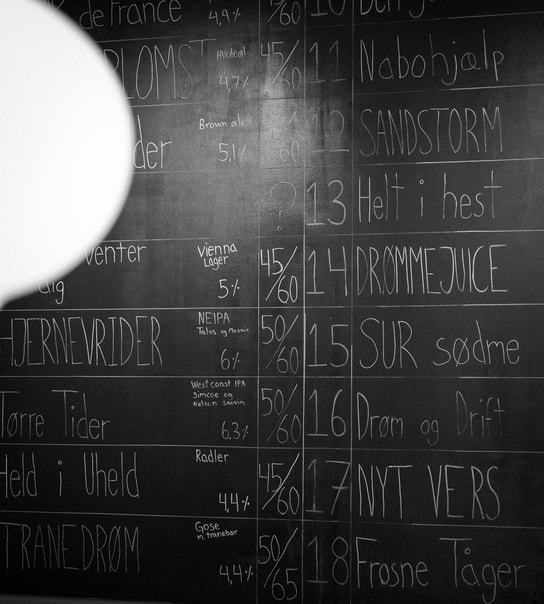 de France 4,9% /60 10
LOMST Hvedeøl 4,7% 45/60 11 Nabohjælp
der Brown ale 5,1% 60 12 SANDSTORM
13 Helt i hest
venter Vienna Lager 5% 45/60 14 DRØMMEJUICE
HJERNEVRIDER NEIPA Talus og Mosaic 6% 50/60 15 SUR sødme
Tørre Tider West coast IPA Simcoe og Nelson Sauvin 6,3% 50/60 16 Drøm og Drift
Held i Uheld Radler 4,4% 45/60 17 NYT VERS
TRANEDRØM Gose m. tranebær 4,4% 50/65 18 Frosne Tåger